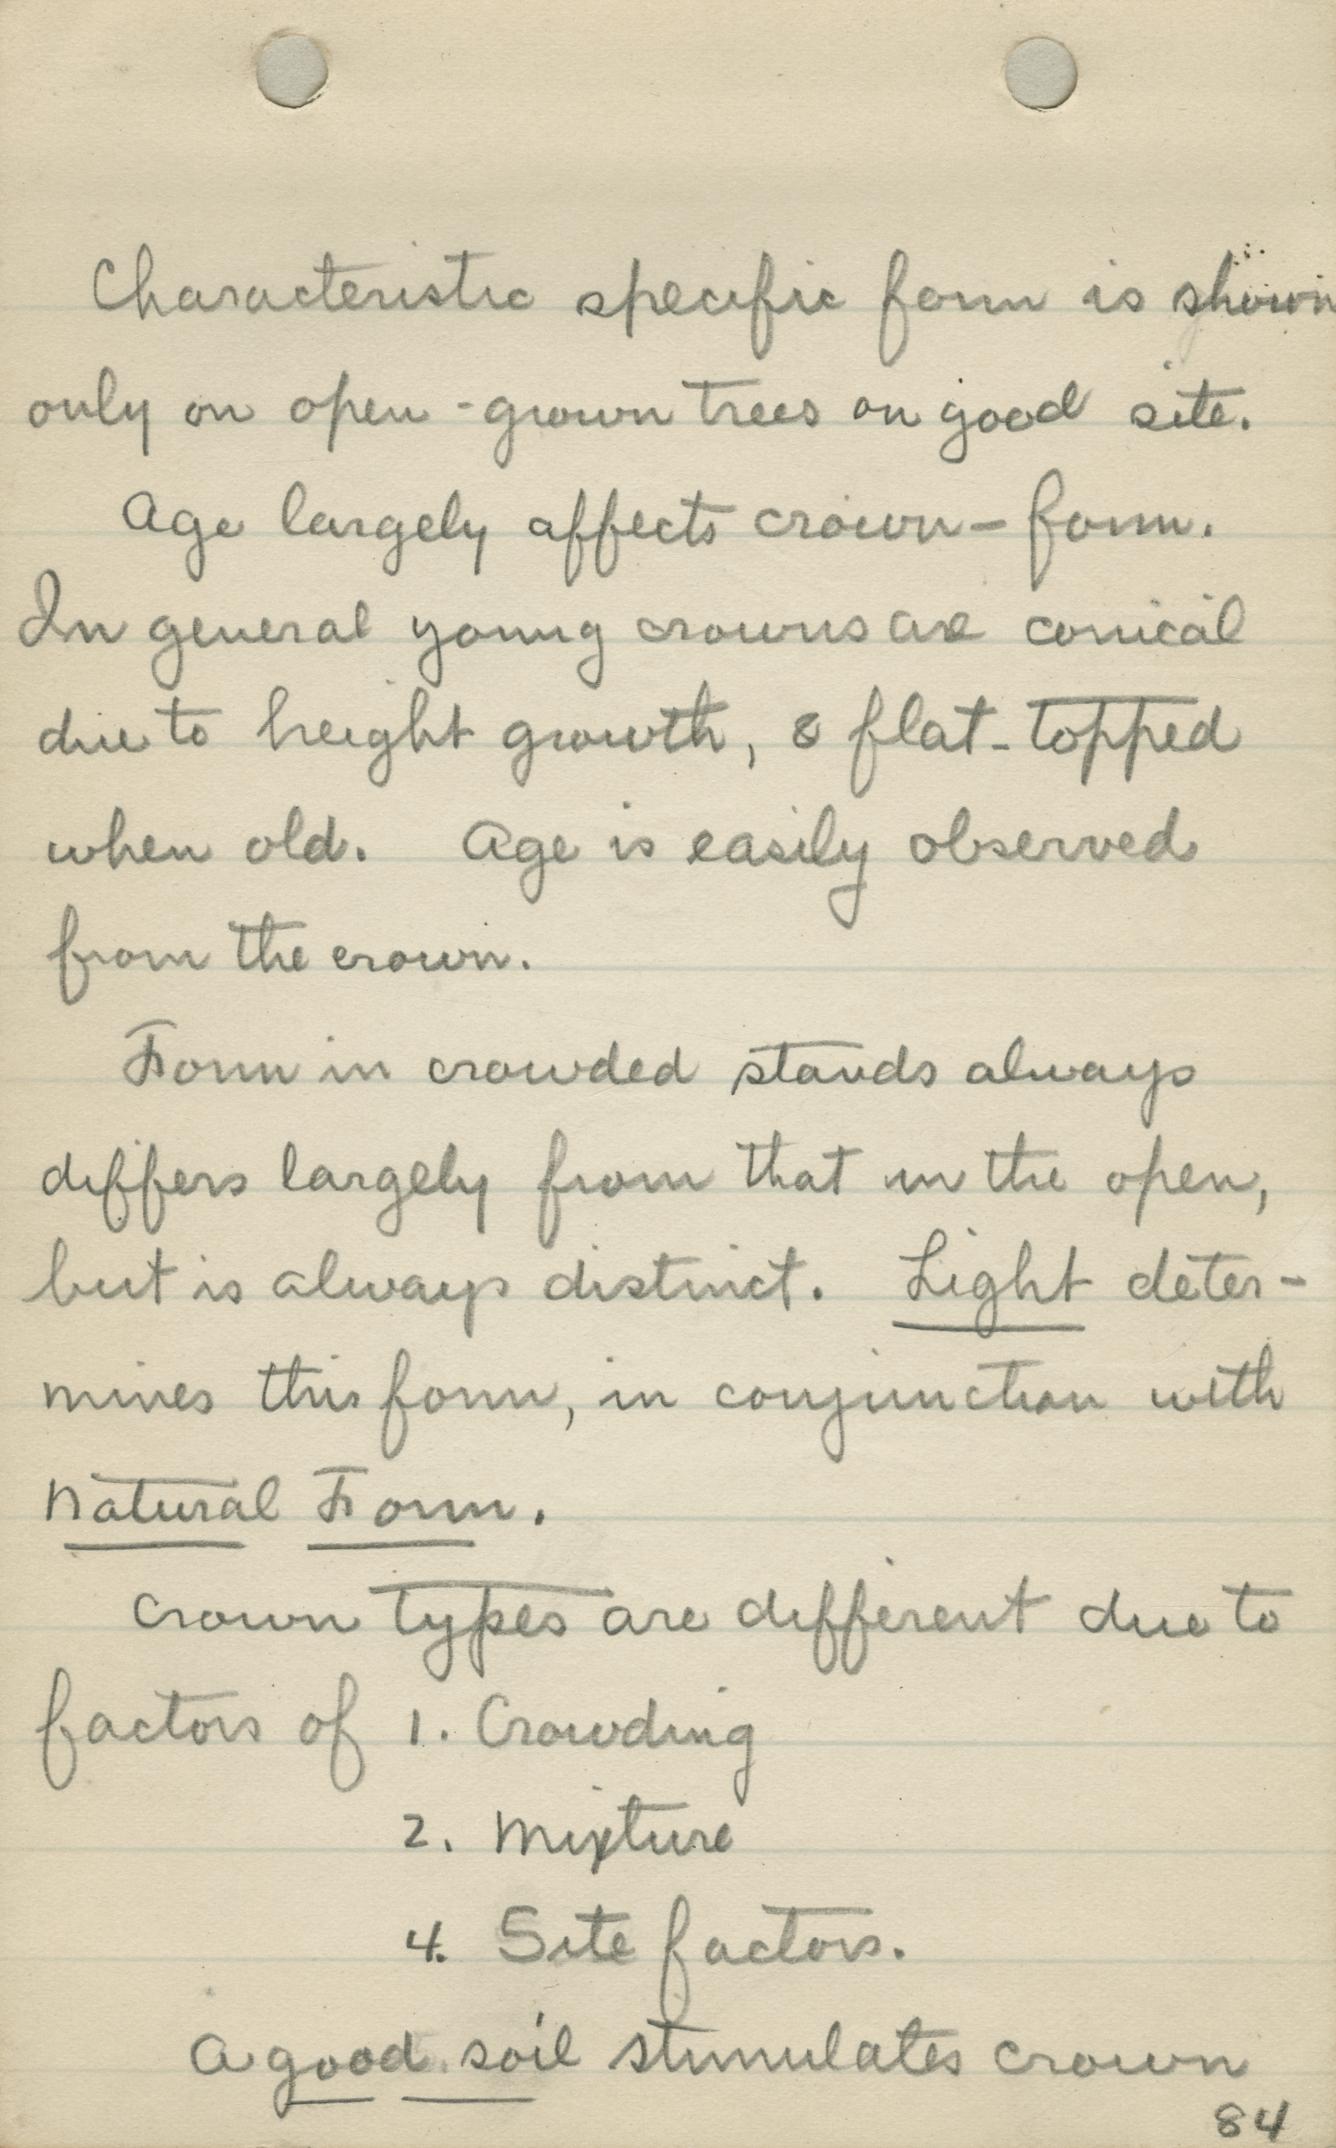 Characteristic specific form is shown
only on open-grown trees on good site.
Age largely affects crown-form.
In general young crowns are conical
due to height growth, & flat-topped
when old. Age is easily observed
from the crown.
Form in crowded stands always
differs largely from that in the open,
but is always distinct. Light deter-
mines this form, in conjunction with
Natural Form.
Crown types are different due to
factors of 1. Crowding
2. Mixture
4. Site factors.
A good soil stimulates crown
84